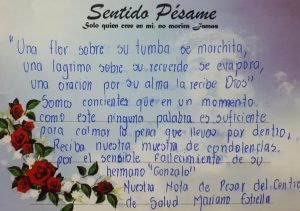 Sentido Pésame
Solo quien cree en mi, no morira Jamas
"Una flor sobre su tumba se marchita,
una lagrima sobre su recuerdo se evapora,
una oración por su alma la recibe Dios"
Somos concientes que en un momento
como este ninguna palabra es suficiente
para calmar la pena que llevas por dentro,
Reciba nuestra muestra de condolencias.
por el sensible Fallecimiento de su
hermano "Gonzalo"
Nuestra Nota de Pesar del Centro
de Salud Mariano Estrella